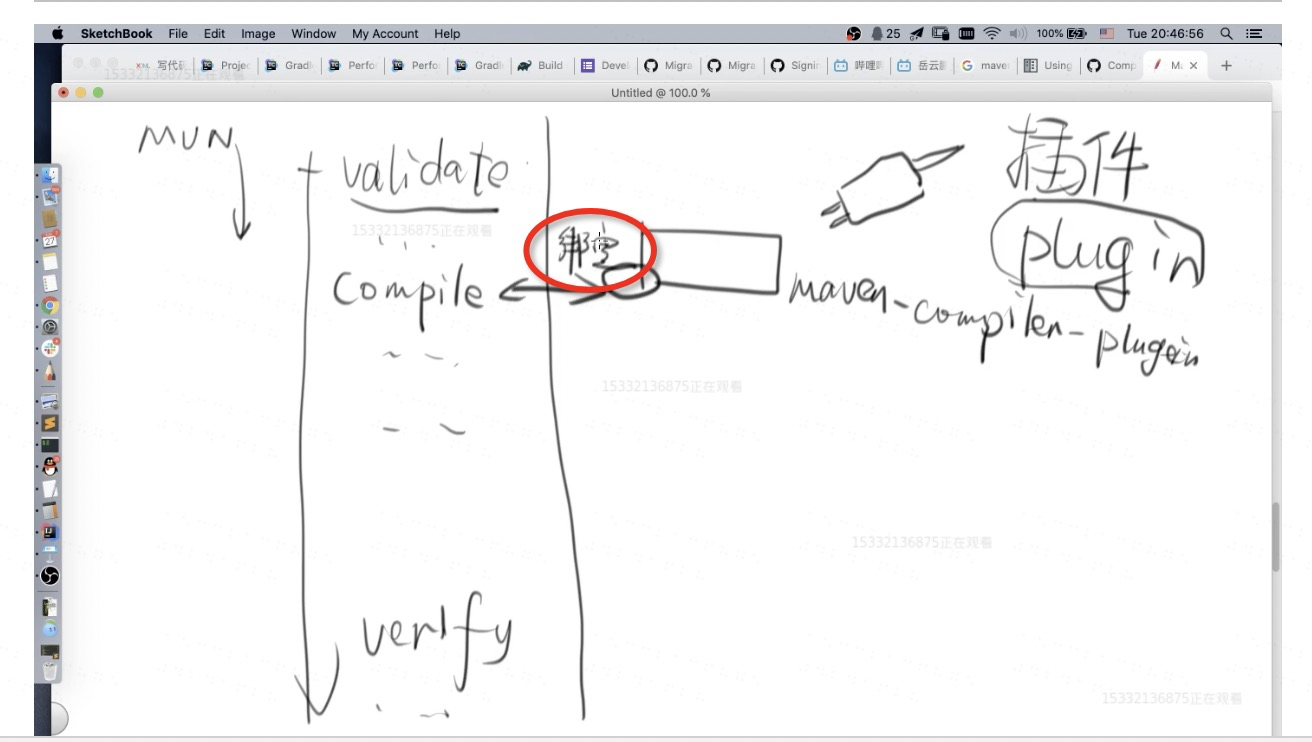 SketchBook File Edit Image Window My Account Help 25 100% Tue 20:46:56
写代 Projec Gradl Perfo Perfo Gradl Build Devel Migra Migra Signin 哔哩 岳云 mave Using Comp M
15332136875正在观看
Untitled @ 100.0 %
MVN
validate
插件
15332136875正在观看
绑定
plugin
compile
maven-compiler-plugin
15332136875正在观看
15332136875正在观看
verify
15332136875正在观看